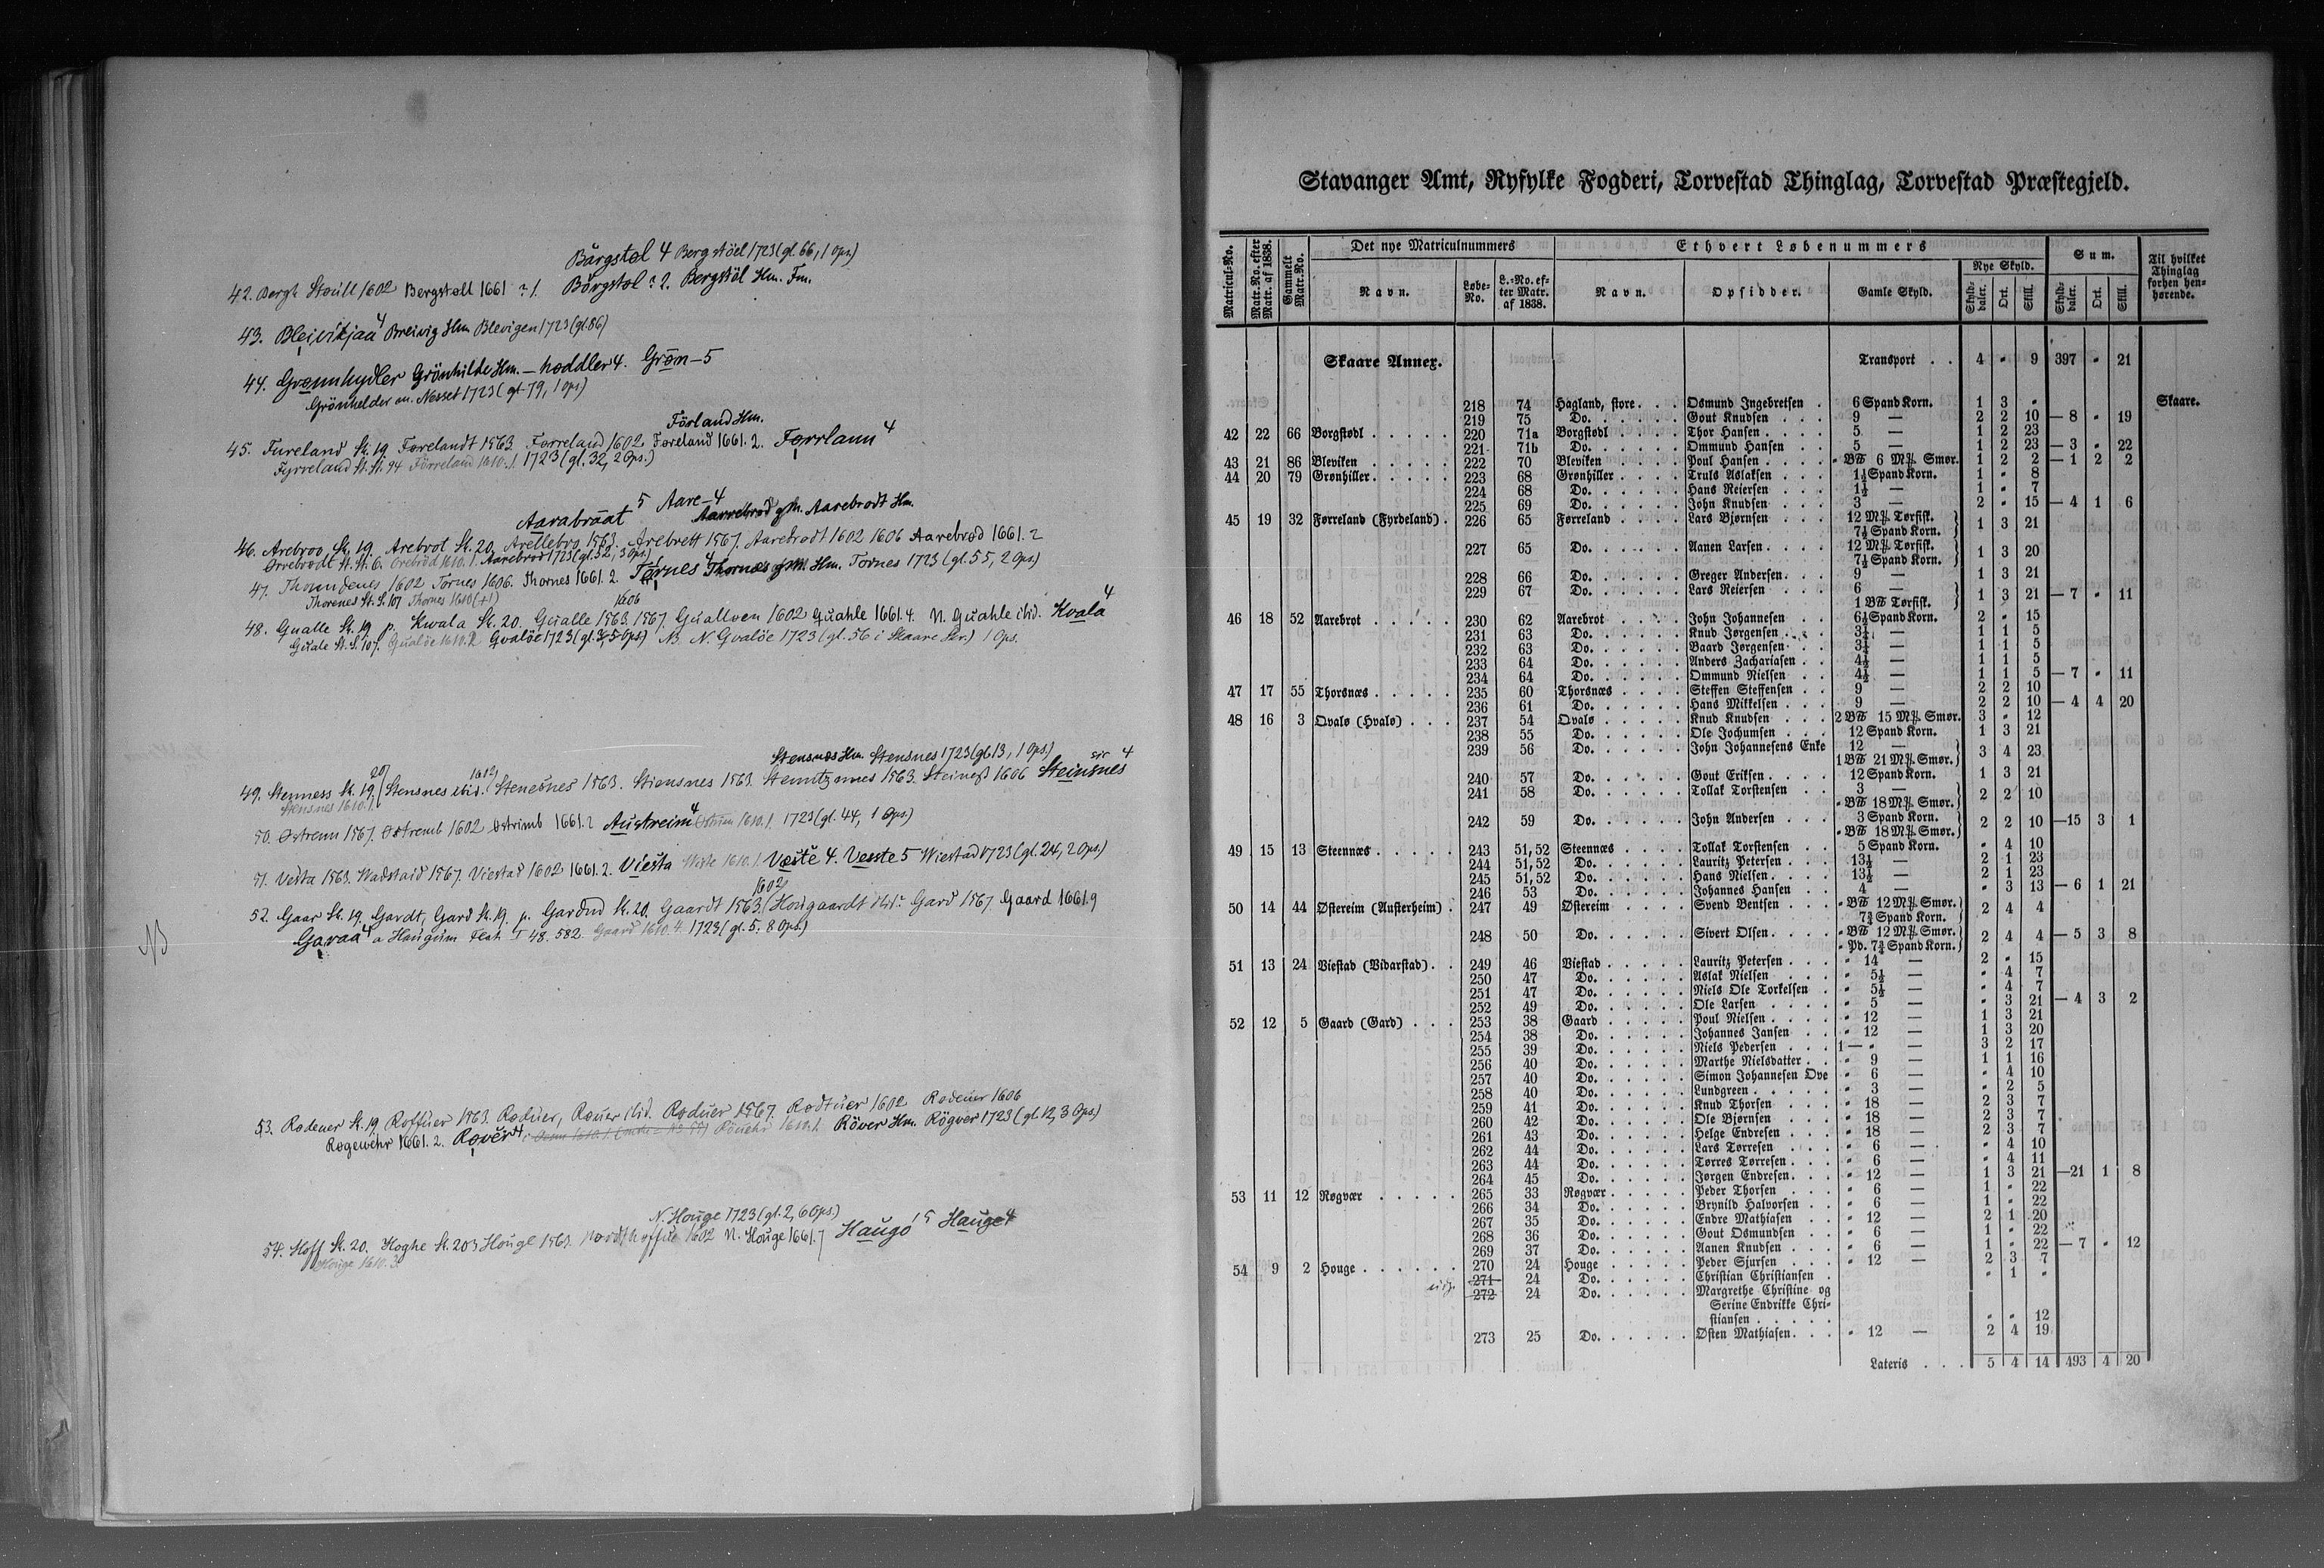 Bårgstøl 4 Bergstöel 1723 (gl. 66, 1 Ops.)
42. Bergh Støull 1602 Bergstøll 1661 ? 1. Börgstøl ? 2. Bergstöl Hm. Fm.
43. Bleivikjaa 4 Breivig Hm Blevigen 1723 (gl. 86)
44. Grønnhydler Grönhilde Hm. – høddler 4. Grøn – 5
Grönhelder m. Nesset 1723 (gl. 79, 1 Ops)
Förland Hm.
45. Fureland Sk. 19. Førelandt 1563. Førreland 1602. Føreland 1661. 2. Førrlann 4
Fyrreland St. S. 94 Förreland 1610. 1. 1723 (gl. 32, 2 Ops.)
Aarabråat 5 Aare – 4
Aarebrodt Hm.
46. Arebroo Sk. 19. Arebrot Sk. 20. Arellebro 1563. Arebrett 1567. Aarebrødt 1602 1606 Aarebrød 1661. 2
Orrebrødt St. S. 6. Örebröd 1610. 1. Aarebröd 1723 (gl. 52, 3 Ops)
47. Thonndenes 1602 Tornes 1606. Thornes 1661. 2. Tørnes 4 Hm. Tornes 1723 (gl. 55, 2 Ops)
Thorenes St. S. 107 Thornes 1610 (+1)
1606
48. Gualle Sk. 19 p. Kwala Sk. 20. Gualle 1563. 1567. Gualløen 1602 Guahle 1661. 4. N. Guahle ibid. Kvala 4
Guale St. S. 107. Gualöe 1610. Gvalöe 1723 (gl. 3, 5 Ops) N. Gvalöe 1723 (gl. 56 i Skaare Skr.) 1 Ops.
Stensnæs Hm. Stensnes 1723 (gl. 13, 1 Ops.)
49. Stenness Sk. 19. Stensnes ibid. Stenesnes 1563. Stiensnes 1563. Stenntznnes 1563. Steineß 1606 Steinsnes 4
Stensnes 1610. 1
50. Østrenn 1567. Østremb 1602 Østrimb 1661. 2 Austreim 4 1610. 1. 1723 (gl. 44, 1 Ops.)
51. Vesta 1563. Wadstaid 1567. Viestad 1602 1661. 2. Viesta 1610. 1 Veste 4. Veeste 5 Wiestad 1723 (gl. 24, 2 Ops.)
1602
52. Gaar Sk. 19. Gardt, Gard Sk. 19. p. Gardnd Sk. 20. Gaardt 1563. Hougaardt ibid. Gard 1567. Gaard 1661. 9
Garaa 4 a Haugum Flat. I 48. 582. Gaard 1610. 4. 1723 (gl. 5, 8 Ops.)
53. Rødeuer Sk. 19 Roffuer 1563. Røduer, Røuer ibid. Røduer 1567. Rødtuer 1602 Rødeuer 1606
Røgewehr 1661. 2. Røver 4. Röuehr 1610. 1. Röver Hm. Rögver 1723 (gl. 12, 3 Ops)
N. Houge 1723 (gl. 2, 6 Ops.)
54. Hoff Sk. 20. Hoghe Sk. 203 Hougl 1563. 1602 N. Houge 1661. 7 Haugo 5 Hauge 4
Houge 1610. 3
Stavanger Amt, Ryfylke Fogderi, Torvestad Thinglag, Torvestad Præstegjeld.
Matricul-No. | Matr.-No. efter Matr. af 1838. | Gammelt Matr.-No. | Det nye Matriculnummers | Ethvert Løbenummers | Sum. | Til hvilket Thinglag forhen henhørende.
Navn. | Løbe-No. | L.-No. efter Matr. af 1838. | Navn. | Opsidder. | Gamle Skyld. | Nye Skyld. Skylddaler. Ort. Skill. | Skylddaler. Ort. Skill.
Skaare Annex. Transport . . 4 " 9 397 " 21
218 74 Hagland, store . . . Osmund Ingebretsen . 6 Spand Korn. 1 3 " Skaare.
219 75 Do. Gout Knudsen . . . 9 — 2 2 10 — 8 " 19
42 22 66 Borgstødl . . . . . 220 71a Borgstødl . . . . Thor Hansen . . . . 5 — 1 2 23
221 71b Do. Ommund Hansen . . 5 — 1 2 23 — 3 " 22
43 21 86 Bleviken . . . . . 222 70 Bleviken . . . . . Poul Hansen . . . . " B℔ 6 M℔. Smør. 1 2 2 — 1 2 2
44 20 79 Grønhiller . . . . . 223 68 Grønhiller . . . . Truls Aslaksen . . . 1½ Spand Korn. 1 " 8
224 68 Do. Hans Reiersen . . . 1½ — 1 " 7
225 69 Do. John Knudsen . . . 3 — 2 " 15 — 4 1 6
45 19 32 Førreland (Fyrdeland) . 226 65 Førreland . . . . Lars Bjørnsen . . . 12 M℔. Tørfisk. 1 3 21
7½ Spand Korn.
227 65 Do. Aanen Larsen . . . . 12 M℔. Tørfisk. 1 3 20
7½ Spand Korn.
228 66 Do. Greger Andersen . . . 9 — 1 3 21
229 67 Do. Lars Reiersen . . . 6 — 1 3 21 — 7 " 11
1 B℔ Tørfisk.
46 18 52 Aarebrot . . . . . 230 62 Aarebrot . . . . John Johannesen . . 6½ Spand Korn. 2 " 15
231 63 Do. Knud Jørgensen . . . 3¼ — 1 1 5
232 63 Do. Baard Jørgensen . . 3¼ — 1 1 5
233 64 Do. Anders Zachariasen . . 4½ — 1 1 5
234 64 Do. Ommund Nielsen . . 4½ — 1 1 5 — 7 " 11
47 17 55 Thorsnæs . . . . . 235 60 Thorsnæs . . . . Steffen Steffensen . . 9 — 2 2 10
236 61 Do. Hans Mikkelsen . . . 9 — 2 2 10 — 4 4 20
48 16 3 Qvalø (Hvalø) . . . 237 54 Qvalø . . . . . Knud Knudsen . . . 2 B℔ 15 M℔. Smør. 3 " 12
238 55 Do. Ole Jochumsen . . . 12 Spand Korn. 1 3 21
239 56 Do. John Johannesens Enke 12 — 3 4 23
1 B℔ 21 M℔. Smør.
240 57 Do. Gout Eriksen . . . . 12 Spand Korn. 1 3 21
241 58 Do. Tollak Torstensen . . 3 — 2 2 10
" B℔ 18 M℔. Smør.
242 59 Do. John Andersen . . . 3 Spand Korn. 2 2 10 — 15 3 1
" B℔ 18 M℔. Smør.
49 15 13 Steennæs . . . . . 243 51, 52 Steennæs . . . . Tollak Torstensen . . 5 Spand Korn. " 4 10
244 51, 52 Do. Lauritz Petersen . . . 13½ — 2 1 23
245 51, 52 Do. Hans Nielsen . . . . 13½ — 2 1 23
246 53 Do. Johannes Hansen . . 4 — " 3 13 — 6 1 21
50 14 44 Østereim (Austerheim) . 247 49 Østereim . . . . Svend Bentsen . . . " B℔ 12 M℔. Smør. 2 4 4
7¾ Spand Korn.
248 50 Do. Sivert Olsen . . . . " B℔ 12 M℔. Smør. 2 4 4 — 5 3 8
" Pd. 7¾ Spand Korn.
51 13 24 Viestad (Vidarstad) . . 249 46 Viestad . . . . . Lauritz Petersen . . . " 14 — 2 " 15
250 47 Do. Aslak Nielsen . . . " 5½ — " 4 7
251 47 Do. Niels Ole Torkelsen . " 5½ — " 4 7
252 49 Do. Ole Larsen . . . . " 5 — " 3 21 — 4 3 2
52 12 5 Gaard (Gard) . . . 253 38 Gaard . . . . . Poul Nielsen . . . . " 12 — 1 3 21
254 38 Do. Johannes Jansen . . " 12 — 1 3 20
255 39 Do. Niels Pedersen . . . 1 — " — 3 2 17
256 40 Do. Marthe Nielsdatter . . " 9 — 1 1 16
257 40 Do. Simon Johannesen Ove " 6 — " 4 10
258 40 Do. Lundgreen . . . . . " 3 — " 2 5
259 41 Do. Knud Thorsen . . . " 18 — 2 3 7
260 42 Do. Ole Bjørnsen . . . " 18 — 2 3 7
261 43 Do. Helge Endresen . . . " 18 — 2 3 7
262 44 Do. Lars Torresen . . . " 6 — " 4 10
263 44 Do. Tørres Tørresen . . . " 6 — " 4 11
264 45 Do. Jørgen Endresen . . . " 12 — 1 3 21 — 21 1 8
53 11 12 Røgvær . . . . . 265 33 Røgvær . . . . . Peder Thorsen . . . " 6 — 1 " 22
266 34 Do. Brynild Halvorsen . . " 6 — 1 " 22
267 35 Do. Endre Mathiasen . . " 12 — 2 1 20
268 36 Do. Gout Osmundsen . . " 6 — 1 " 22
269 37 Do. Aanen Knudsen . . . " 6 — 1 " 22 — 7 " 12
54 9 2 Houge . . . . . . 270 24 Houge . . . . . Peder Sjursen . . . " 12 — 2 3 7
271 24 Do. Christian Christiansen . " 1 "
272 24 Do. Margrethe Christine og
Serine Endrikke Chri-
stiansen . . . . . " " 12
273 25 Do. Østen Mathiasen . . . " 12 — 2 4 19
Lateris . . . 5 4 14 493 4 20